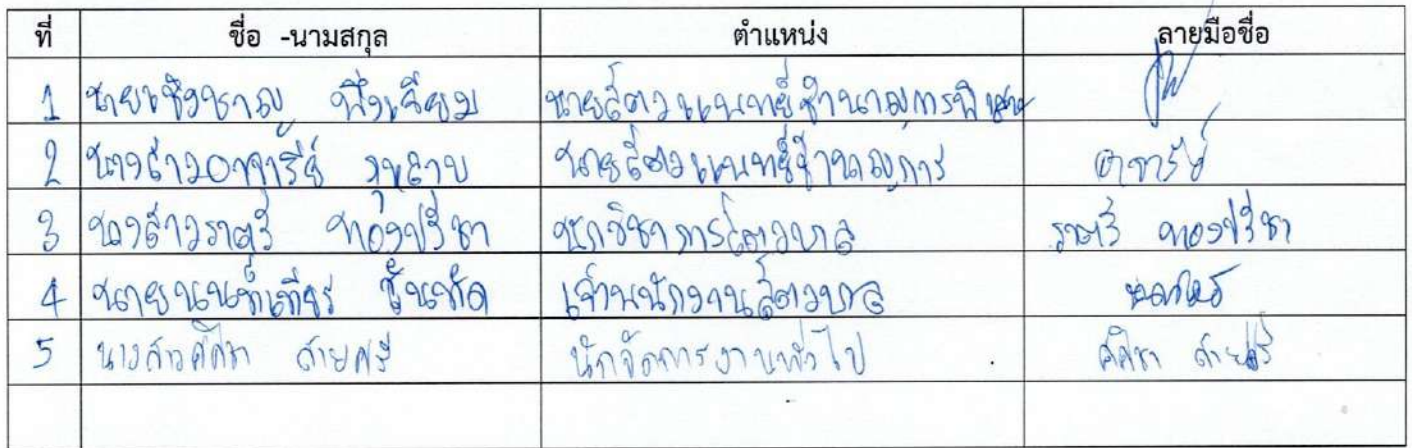 ที่ ชื่อ -นามสกุล ตำแหน่ง ลายมือชื่อ
1 นายเชิงชาญ พึ่งเจียม นายสัตวแพทย์ชำนาญการพิเศษ
2 นางสาวอาจารีย์ กุหลาบ นายสัตวแพทย์ชำนาญการ อาจารีย์
3 นางสาวราตรี ทองปรีชา นักวิชาการสัตวบาล ราตรี ทองปรีชา
4 นายนนท์เทียร ชั้นทัด เจ้าพนักงานสัตวบาล
5 นางสาวศศิชา สายศรี นักจัดการงานทั่วไป ศศิชา สายศรี